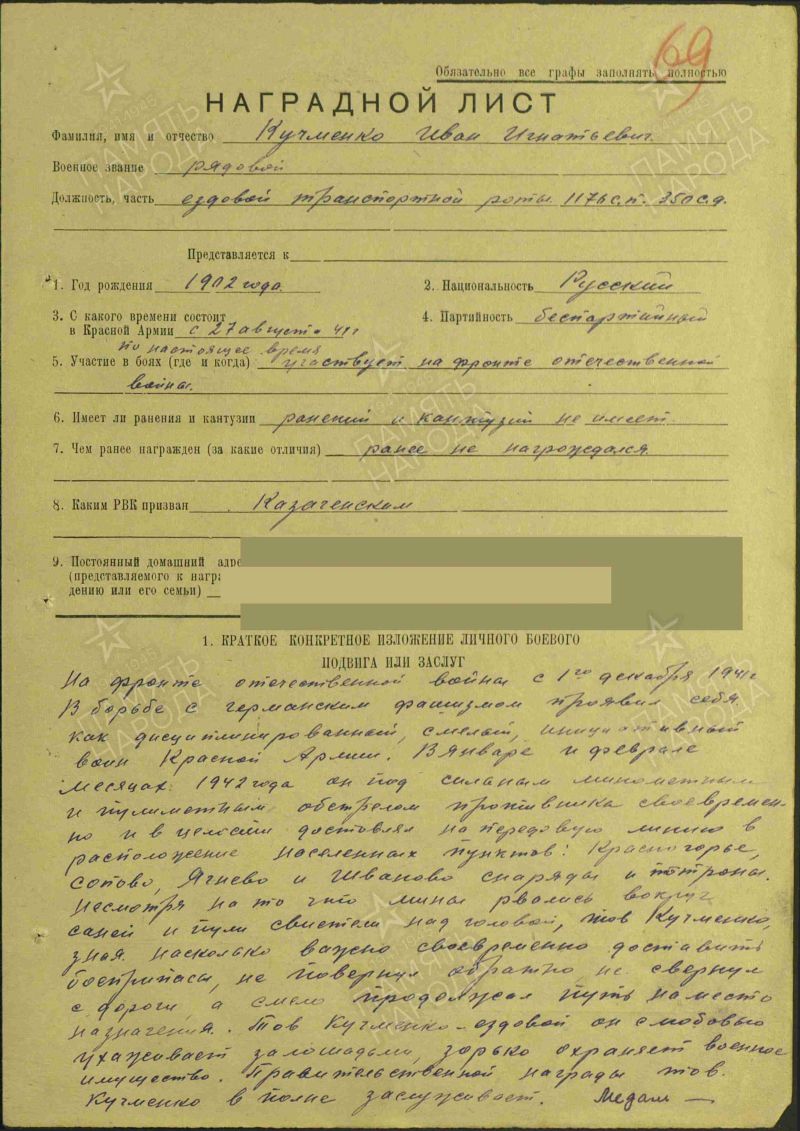 69
Обязательно все графы заполнять полностью
НАГРАДНОЙ ЛИСТ
Фамилия, имя и отчество Кучменко Иван Игнатьевич.
Военное звание рядовой
Должность, часть ездовой транспортной роты 1176 с.п. 350 с.д.
Представляется к
1. Год рождения 1902 года. 2. Национальность Русский
3. С какого времени состоит
в Красной Армии с 27 августа 41 г 4. Партийность беспартийный
по настоящее время
5. Участие в боях (где и когда) участвует на фронте отечественной
войны.
6. Имеет ли ранения и кантузии ранений и кантузий не имеет.
7. Чем ранее награжден (за какие отличия) ранее не награждался
8. Каким РВК призван Казаченским
9. Постоянный домашний адре
(представляемого к награ
дению или его семьи)
1. КРАТКОЕ КОНКРЕТНОЕ ИЗЛОЖЕНИЕ ЛИЧНОГО БОЕВОГО
ПОДВИГА ИЛИ ЗАСЛУГ
На фронте отечественной войны с 1го декабря 1941 г
В борьбе с германским фашизмом проявил себя
как дисциплинированный, смелый, инициативный
воин Красной Армии. В январе и феврале
месяцах 1942 года он под сильным минометным
и пулиметным обстрелом противника своевремен-
но и в целости доставлял на передовую линию в
расположение населенных пунктов: Красногорье,
Сопово, Ячнево и Иваново снаряды и патроны.
Несмотря на то что мины рвались вокруг
саней и пули свистели над головой, тов Кучменко,
зная насколько важно своевременно доставить
боеприпасы, не повернул обратно не свернул
с дороги, а смело продолжал путь на место
назначения. Тов Кучменко – ездовой он с любовью
ухаживает за лошадьми, зорько охраняет военное
имущество. Правительственной награды тов.
Кучменко в полне заслуживает. Медали —